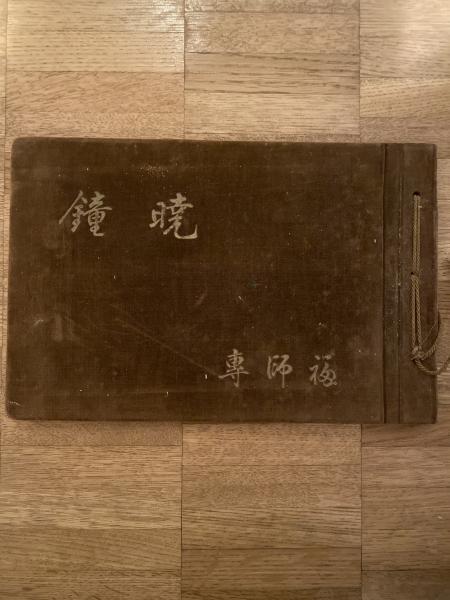 曉鐘
福師專